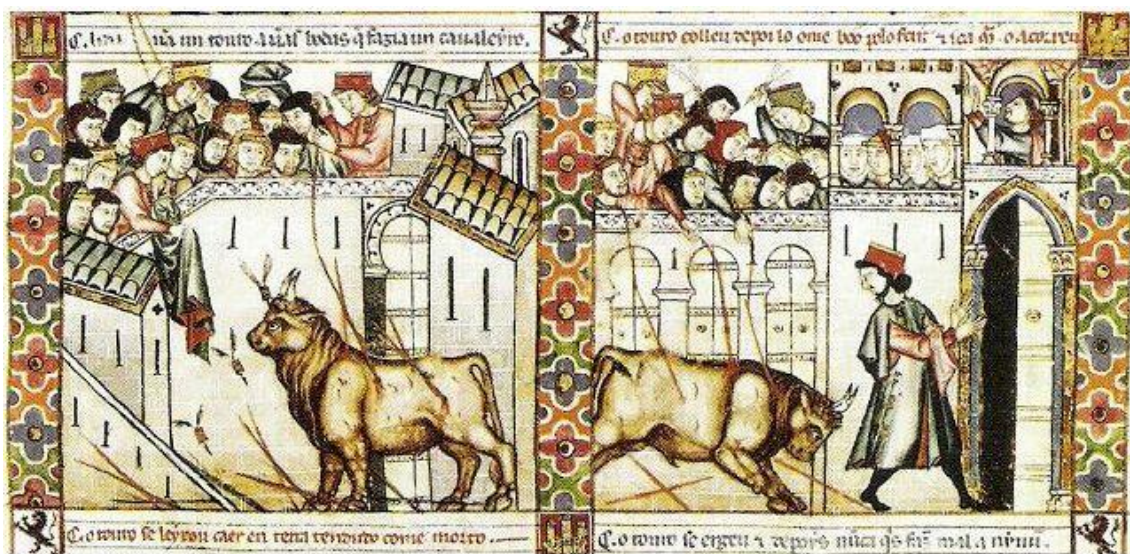 C. un touro a ũas bodas q̃ fazia un caualeyro.
C. o touro colleu depoi lo ome boo polo ferir
C. o touro se leyxou caer en terra tendudo come morto.
C. o touro se ergeu & depoys nũca q̃s mal a